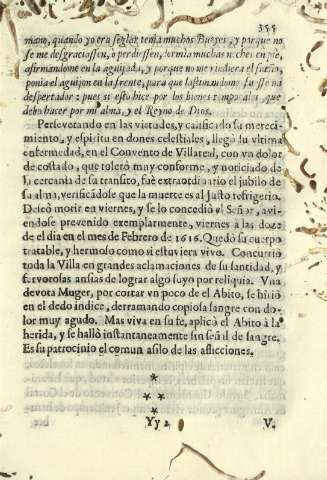 355
mano, quando yo era seglar tenia muchos Bueyes, y porque no
se me desgraciassen, o perdiessen, dormia muchas noches en pie,
afirmandome en la aguijada, y porque no me rindiera el sueño,
ponia el aguijon en la frente, para que lastimandome fuesse
despertador: pues si esto hice por los bienes temporales, que
debo hacer por mi alma, y el Reyno de Dios.
Perseverando en las virtudes, y calificado su mereci-
miento, y espiritu en dones celestiales, llegó su vltima
enfermedad, en el Convento de Villareal, con vn dolor
de costado, que toleró muy conforme, y noticiado de
la cercania de su transito, fue extraordinario el jubilo de
su alma, verificandose que la muerte es al Justo refrigerio.
Deseó morir en viernes, y se lo concedió el Señor, avi-
endose prevenido exemplarmente, viernes à las doze
de el dia en el mes de Febrero de 1616. Quedó su cuerpo
tratable, y hermoso como si estuviera vivo. Concurrió
toda la Villa en grandes aclamaciones de su santidad, y
fervorosas ansias de lograr algo suyo por reliquia. Vna
devota Muger, por cortar vn poco de el Abito, se hirió
en el dedo indice, derramando copiosa sangre con do-
lor muy agudo. Mas viva en su fe, aplicó el Abito à la
herida, y se halló instantaneamente sin señal de sangre.
Es su patrocinio el comun asilo de las aflicciones.
*
* *
*
Yy 2 V.